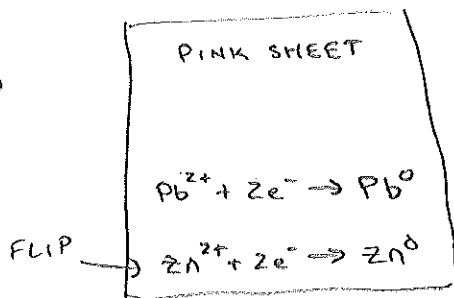 PINK SHEET
Pb²⁺ + 2e⁻ → Pb⁰
FLIP → Zn²⁺ + 2e⁻ → Zn⁰